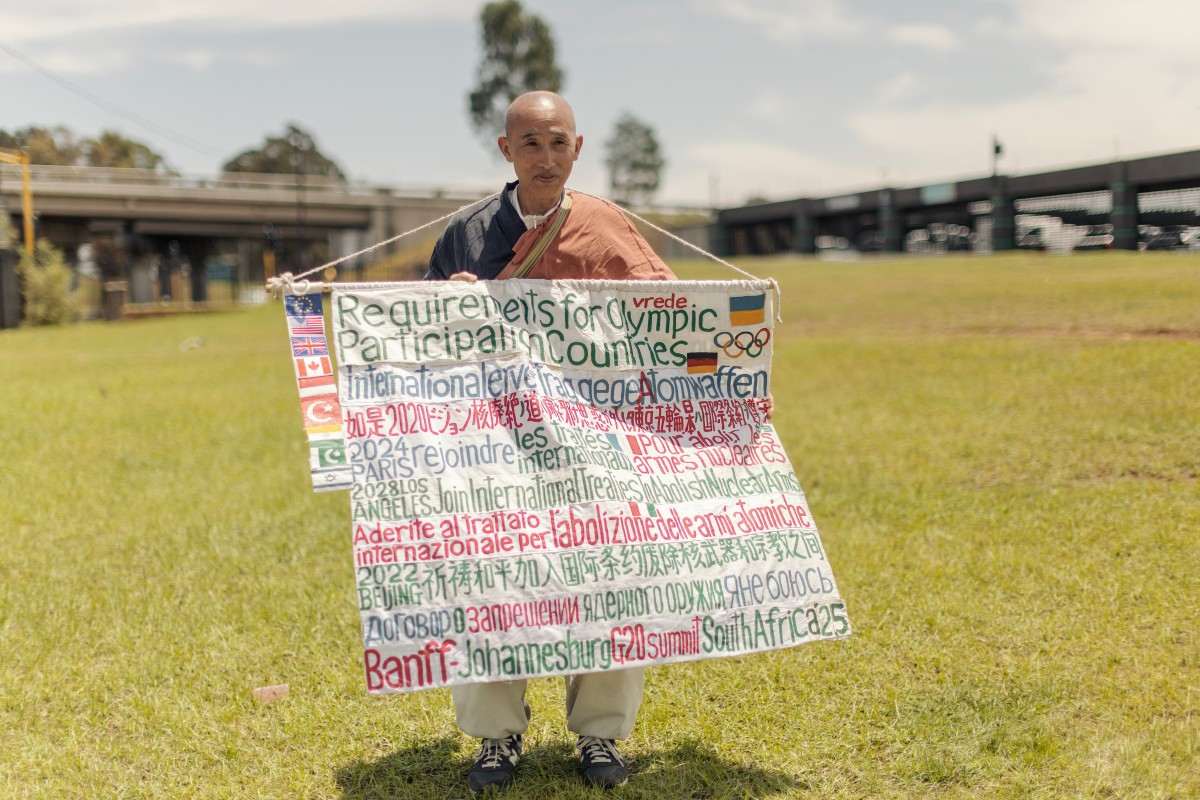 Requirements for Olympic vrede
Participation Countries
Internationaler Vertrag gegen Atomwaffen
如是2020ビジョン核廃絶ノ道
東京五輪
国際条約
2024 rejoindre les Traités Pour abolir
PARIS internationaux armes nucléaires
2028 LOS
ANGELES Join International Treaties to Abolish Nuclear Arms
Aderite al trattato
internazionale per l'abolizione delle armi atomiche
2022 祈祷和平加入国际条约废除核武器和宗教之间
BEIJING
договор о запрещении ядерного оружия я не боюсь
Banff-Johannesburg G20 summit South Africa '25